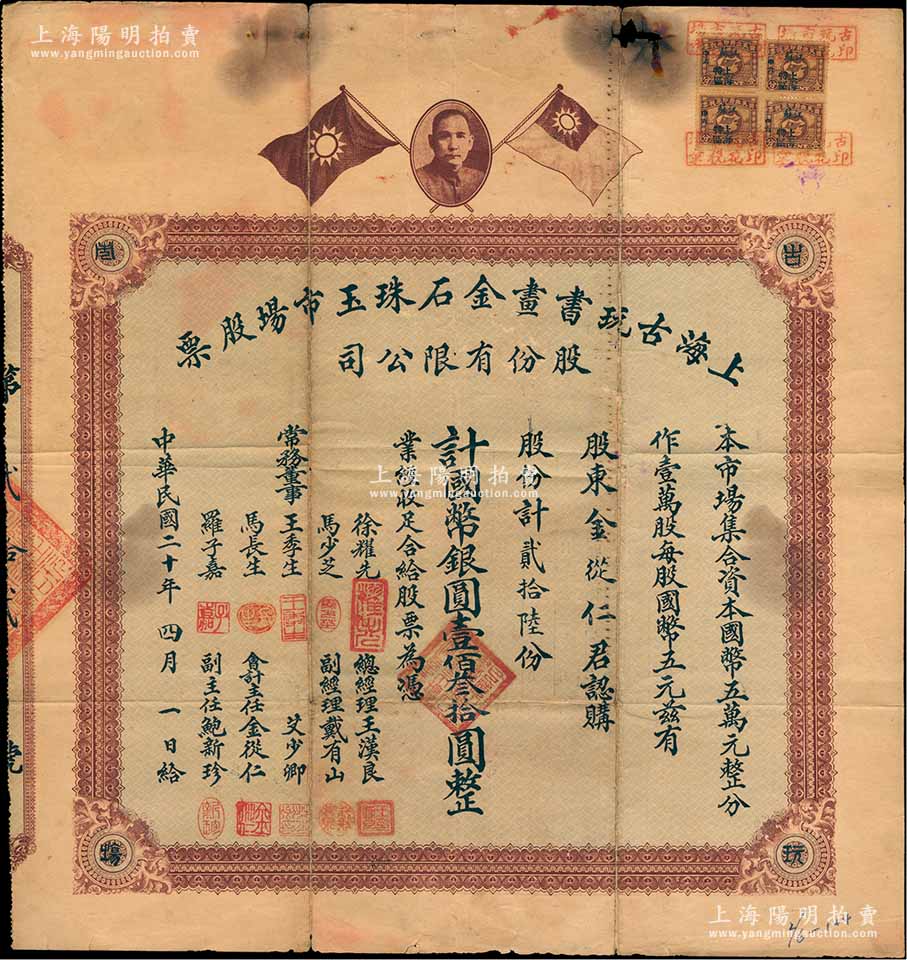 上海陽明拍賣
www.yangmingauction.com
古
玩
市
場
上海古玩書畫金石珠玉市場股票
股份有限公司
本市場集合資本國幣五萬元整分
作壹萬股每股國幣五元茲有
股東金從仁君認購
股份計貳拾陸份
計國幣銀圓壹佰叁拾圓整
業經收足合給股票為憑
徐耀先 總經理王漢良
馬少芝 副經理戴有山
常務董事王季生 艾少卿
馬長生 會計主任金從仁
羅子嘉 副主任鮑新珍
中華民國二十年四月一日給
第
貳拾
號
上海陽明拍賣
www.yangmingauction.com
上海陽明拍賣
www.yangmingauction.com